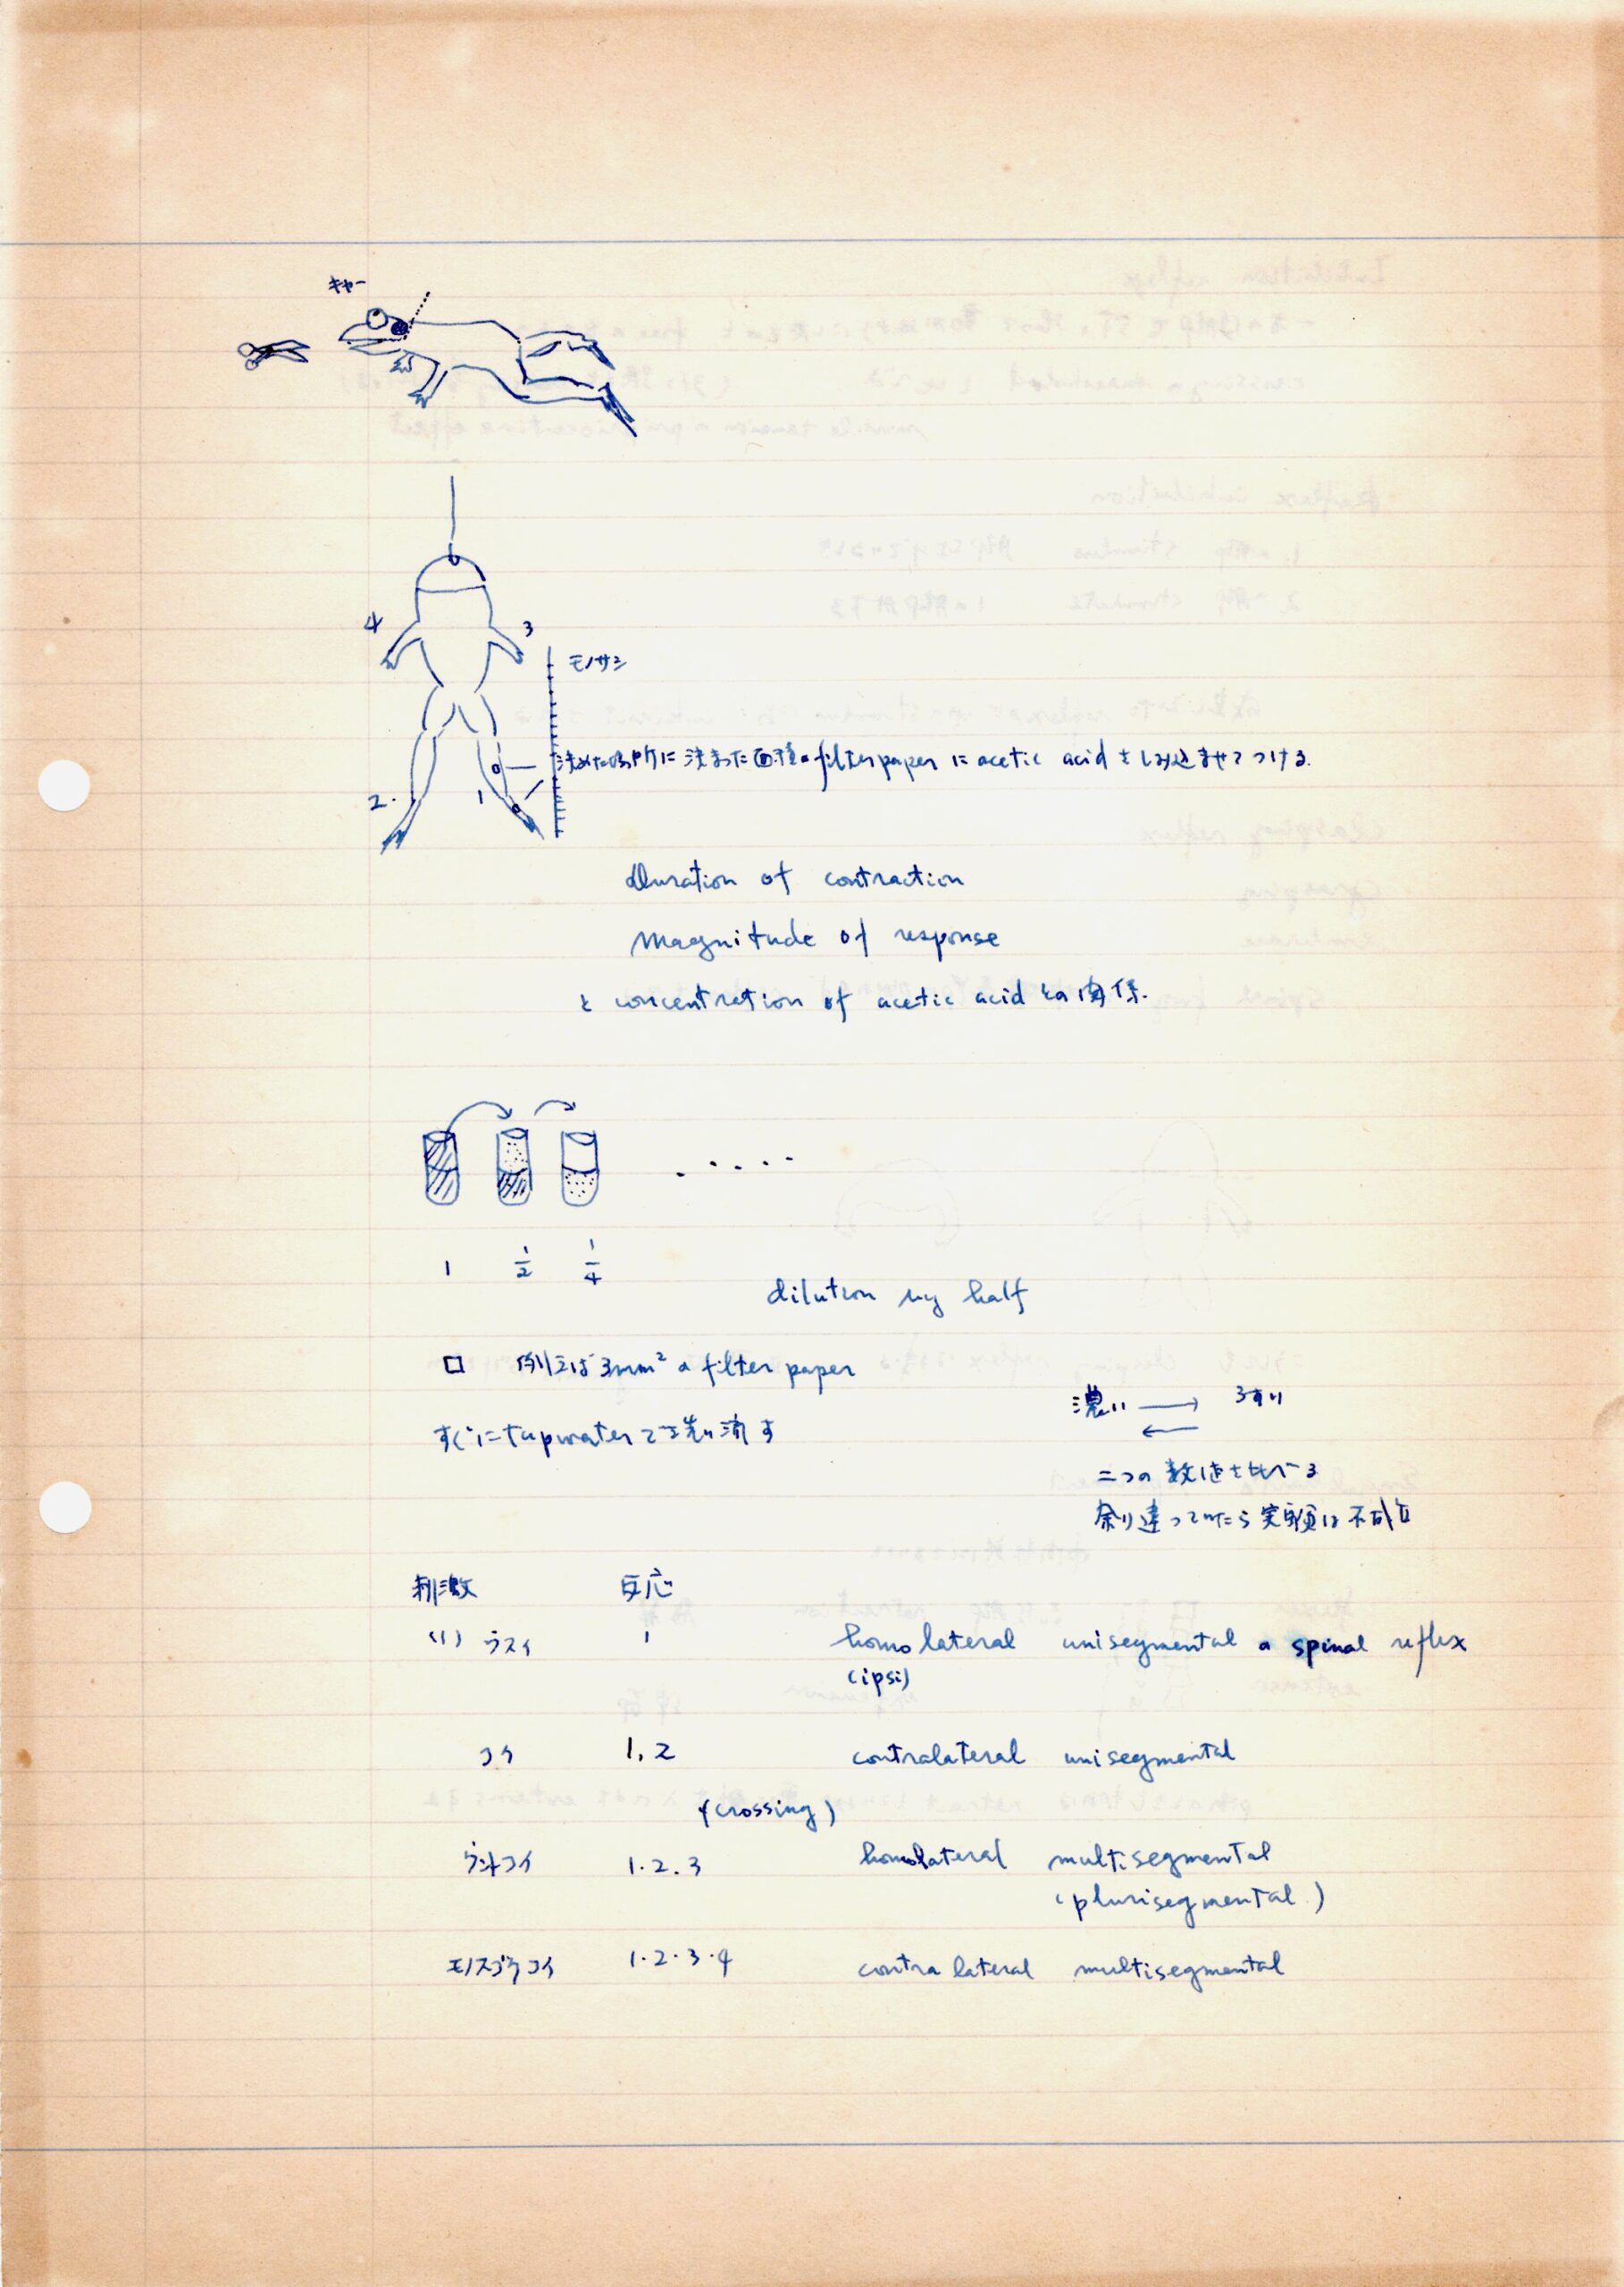 キャー
4
3
モノサシ
決めた場所に決まった面積のfilter paperに acetic acid をしみ込ませてつける.
2.
1
Duration of contraction
Magnitude of response
と concentration of acetic acid との関係.
1 1/2 1/4
dilution by half
例えば 3mm² の filter paper
濃い → うすい
←
すぐに tap water で洗い流す
二つの数値を比べる
余り違っていたら実験は不成立
刺激 反応
(1) ウスイ 1 homolateral unisegmental a spinal reflex
(ipsi)
コイ 1, 2 contralateral unisegmental
(crossing)
ウントコイ 1.2.3 homolateral multisegmental
(plurisegmental)
モノスゴクコイ 1.2.3.4 contralateral multisegmental